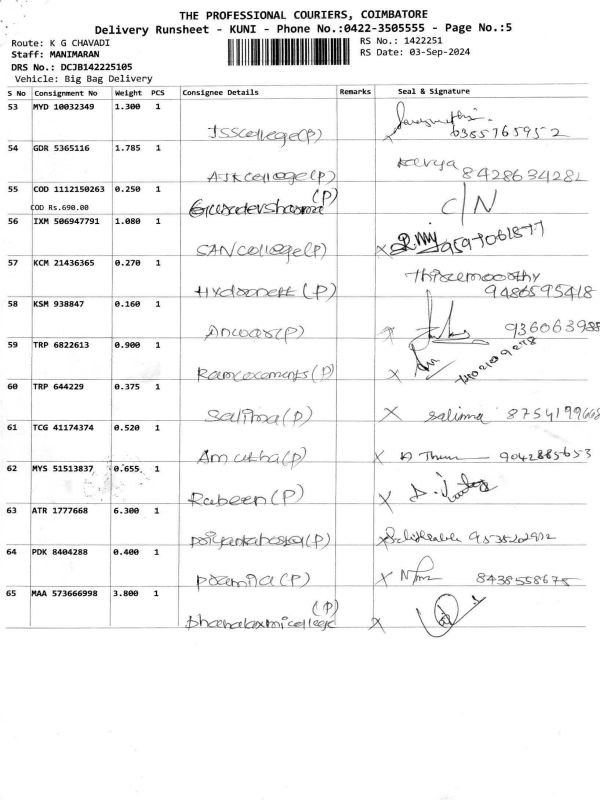 THE PROFESSIONAL COURIERS, COIMBATORE
Delivery Runsheet - KUNI - Phone No.:0422-3505555 - Page No.:5
Route: K G CHAVADI
RS No.: 1422251
Staff: MANIMARAN
RS Date: 03-Sep-2024
DRS No.: DCJB142225105
Vehicle: Big Bag Delivery
S No Consignment No Weight PCS Consignee Details Remarks Seal & Signature
53 MYD 10032349 1.300 1
JSSCollege(P)
54 GDR 5365116 1.785 1
Kavya
AJKCollege(P) 8428634282
55 COD 1112150263 0.250 1
(P)
COD Rs.690.00
C/N
56 IXM 506947791 1.080 1
SANCollege(P) X
57 KCM 21436365 0.270 1
(P) 9486595418
58 KSM 938847 0.160 1
Anwar(P) 936063988
59 TRP 6822613 0.900 1
Ramcocements(P) X
60 TRP 644229 0.375 1
Salima(P) X salima 8754199668
61 TCG 41174374 0.520 1
Amutha(P) X 9042885653
62 MYS 51513837 0.655 1
Rabeen(P) X
63 ATR 1777668 6.300 1
(P)
64 PDK 8404288 0.400 1
(P) X 8438558675
65 MAA 573666998 3.800 1
(P)
Dhanalaxmicollege X